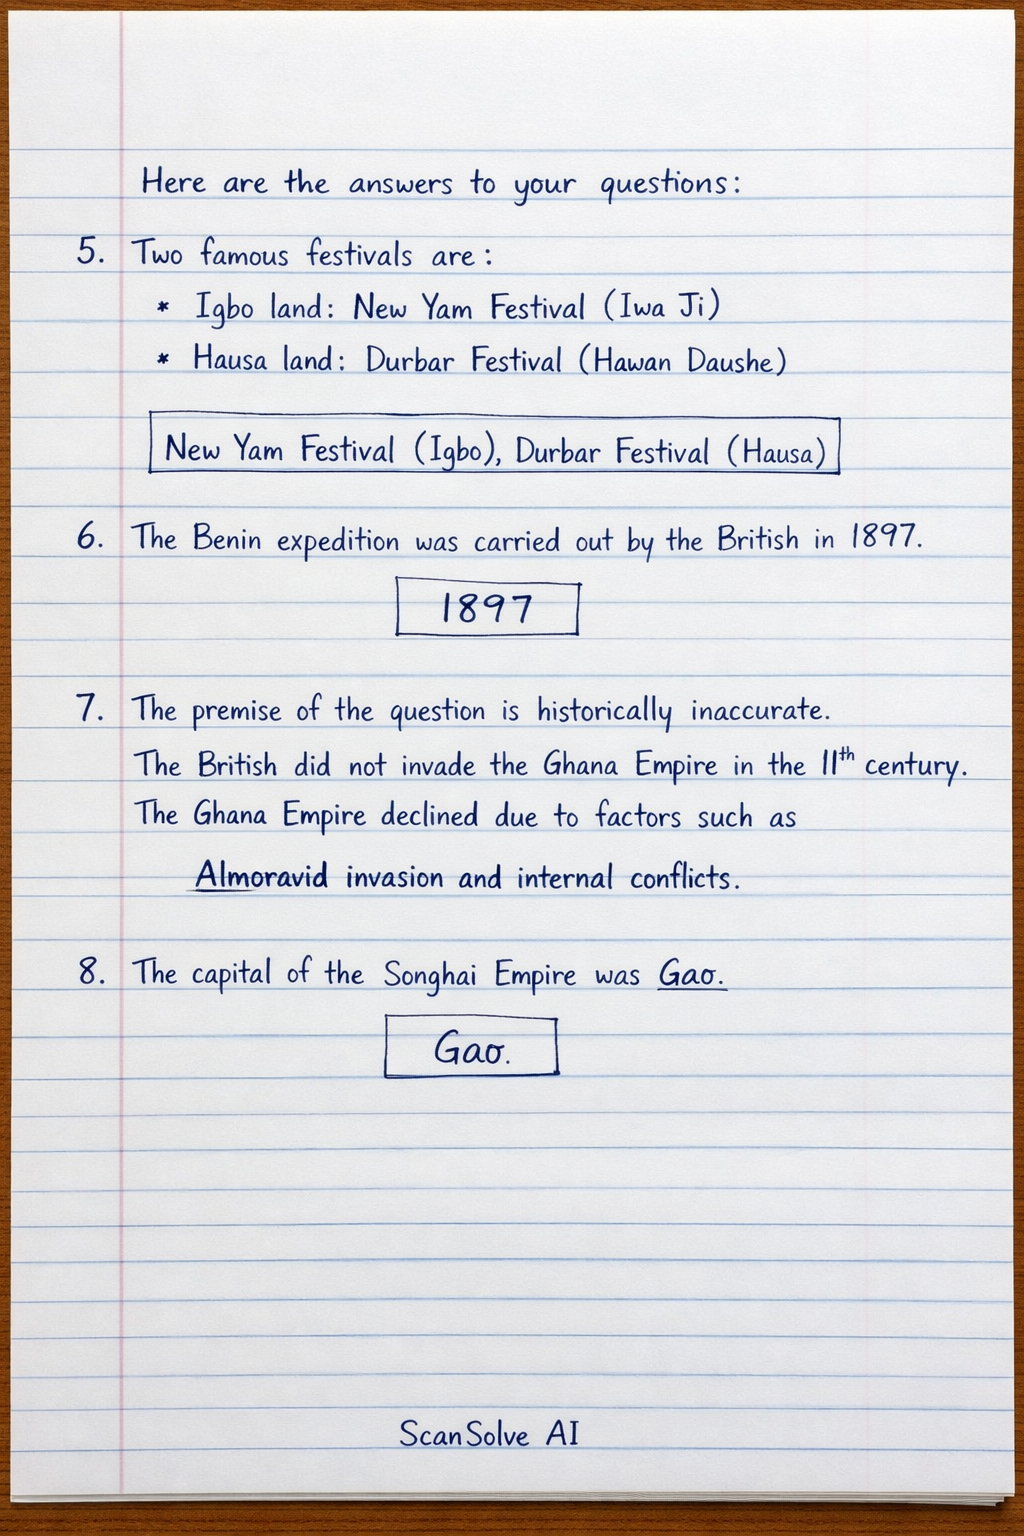 Here are the answers to your questions:
5. Two famous festivals are:
* Igbo land: New Yam Festival (Iwa Ji)
* Hausa land: Durbar Festival (Hawan Daushe)
New Yam Festival (Igbo), Durbar Festival (Hausa)
6. The Benin expedition was carried out by the British in 1897.
1897
7. The premise of the question is historically inaccurate.
The British did not invade the Ghana Empire in the 11th century.
The Ghana Empire declined due to factors such as
Almoravid invasion and internal conflicts.
8. The capital of the Songhai Empire was Gao.
Gao.
ScanSolve AI